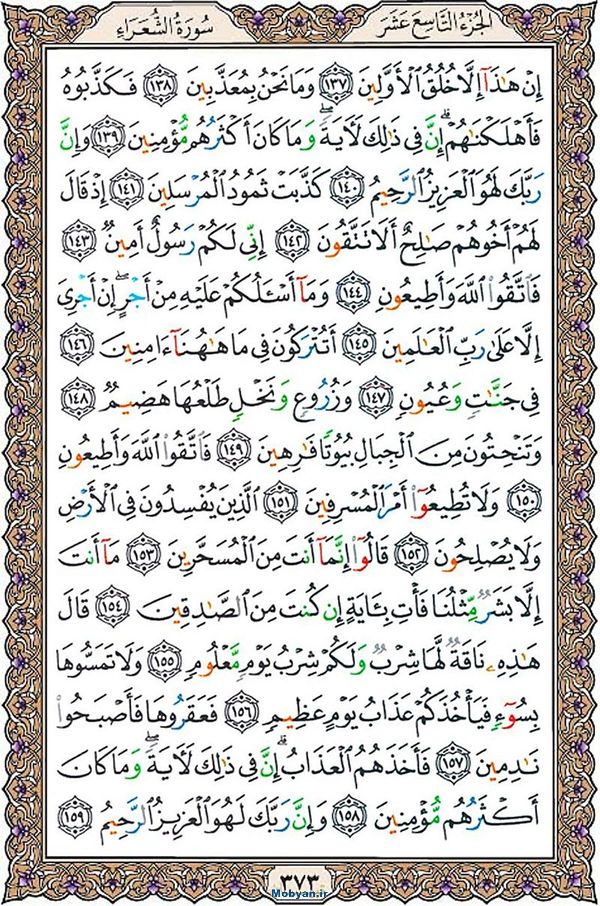 الجزء التاسع عشر
سورة الشعراء
إِنْ هَٰذَآ إِلَّا خُلُقُ ٱلْأَوَّلِينَ ١٣٧ وَمَا نَحْنُ بِمُعَذَّبِينَ ١٣٨ فَكَذَّبُوهُ
فَأَهْلَكْنَٰهُمْ ۗ إِنَّ فِى ذَٰلِكَ لَءَايَةً ۖ وَمَا كَانَ أَكْثَرُهُم مُّؤْمِنِينَ ١٣٩ وَإِنَّ
رَبَّكَ لَهُوَ ٱلْعَزِيزُ ٱلرَّحِيمُ ١٤٠ كَذَّبَتْ ثَمُودُ ٱلْمُرْسَلِينَ ١٤١ إِذْ قَالَ
لَهُمْ أَخُوهُمْ صَٰلِحٌ أَلَا تَتَّقُونَ ١٤٢ إِنِّى لَكُمْ رَسُولٌ أَمِينٌ ١٤٣
فَٱتَّقُوا۟ ٱللَّهَ وَأَطِيعُونِ ١٤٤ وَمَآ أَسْـَٔلُكُمْ عَلَيْهِ مِنْ أَجْرٍ ۖ إِنْ أَجْرِىَ
إِلَّا عَلَىٰ رَبِّ ٱلْعَٰلَمِينَ ١٤٥ أَتُتْرَكُونَ فِى مَا هَٰهُنَآ ءَامِنِينَ ١٤٦
فِى جَنَّٰتٍ وَعُيُونٍ ١٤٧ وَزُرُوعٍ وَنَخْلٍ طَلْعُهَا هَضِيمٌ ١٤٨
وَتَنْحِتُونَ مِنَ ٱلْجِبَالِ بُيُوتًا فَٰرِهِينَ ١٤٩ فَٱتَّقُوا۟ ٱللَّهَ وَأَطِيعُونِ
١٥٠ وَلَا تُطِيعُوٓا۟ أَمْرَ ٱلْمُسْرِفِينَ ١٥١ ٱلَّذِينَ يُفْسِدُونَ فِى ٱلْأَرْضِ
وَلَا يُصْلِحُونَ ١٥٢ قَالُوٓا۟ إِنَّمَآ أَنتَ مِنَ ٱلْمُسَحَّرِينَ ١٥٣ مَآ أَنتَ
إِلَّا بَشَرٌ مِّثْلُنَا فَأْتِ بِـَٔايَةٍ إِن كُنتَ مِنَ ٱلصَّٰدِقِينَ ١٥٤ قَالَ
هَٰذِهِۦ نَاقَةٌ لَّهَا شِرْبٌ وَلَكُمْ شِرْبُ يَوْمٍ مَّعْلُومٍ ١٥٥ وَلَا تَمَسُّوهَا
بِسُوٓءٍ فَيَأْخُذَكُمْ عَذَابُ يَوْمٍ عَظِيمٍ ١٥٦ فَعَقَرُوهَا فَأَصْبَحُوا۟
نَٰدِمِينَ ١٥٧ فَأَخَذَهُمُ ٱلْعَذَابُ ۗ إِنَّ فِى ذَٰلِكَ لَءَايَةً ۖ وَمَا كَانَ
أَكْثَرُهُم مُّؤْمِنِينَ ١٥٨ وَإِنَّ رَبَّكَ لَهُوَ ٱلْعَزِيزُ ٱلرَّحِيمُ ١٥٩
٣٧٣
Mobyan.ir